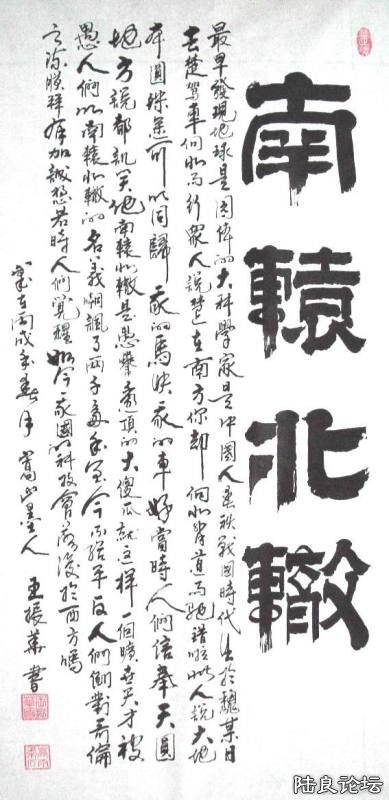 南轅北轍
最早發現地球是圓体的大科學家是中國人春秋戰國時代生於魏某日
去楚駕車向北而行衆人說楚在南方你却向北背道而馳錯啦此人說大地
本圓殊途可以同歸我的馬快我的車好當時人們信奉天圓
地方說都訊笑他南轅北轍是愚蠢透頂的大傻瓜就這样一個曠世天才被
愚人們以南轅北轍的名義嘲諷了兩千多年至今不給平反人們倒對哥倫
膜拜有加誠若時人們覺醒如今我國的科技會落後於西方嗎
歲在丙戌年春月嵩山墨人
王振華書
陆良论坛